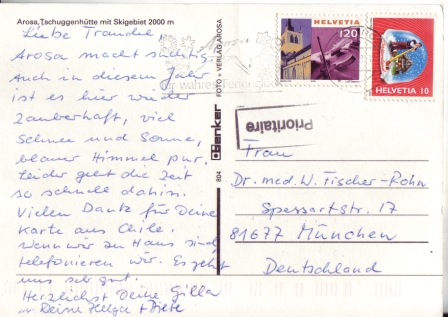 Arosa, Tschuggenhütte mit Skigebiet 2000 m
Liebe Traudel,
Arosa macht süchtig.
Auch in diesem Jahr
ist es hier wieder
zauberhaft, viel
Schnee und Sonne,
blauer Himmel pur.
Leider geht die Zeit
so schnell dahin.
Vielen Dank für Deine
Karte aus Chile.
Wenn wir zu Haus sind
telefonieren wir. Es geht
uns sehr gut.
Herzlichst Deine Gilla
Deine Helga + Piete
804
Benker
FOTO + VERLAG AROSA
HELVETIA
120
HELVETIA 10
Prioritaire
Frau
Dr. med. W. Fischer-Rohn
Spessartstr. 17
81677 München
Deutschland